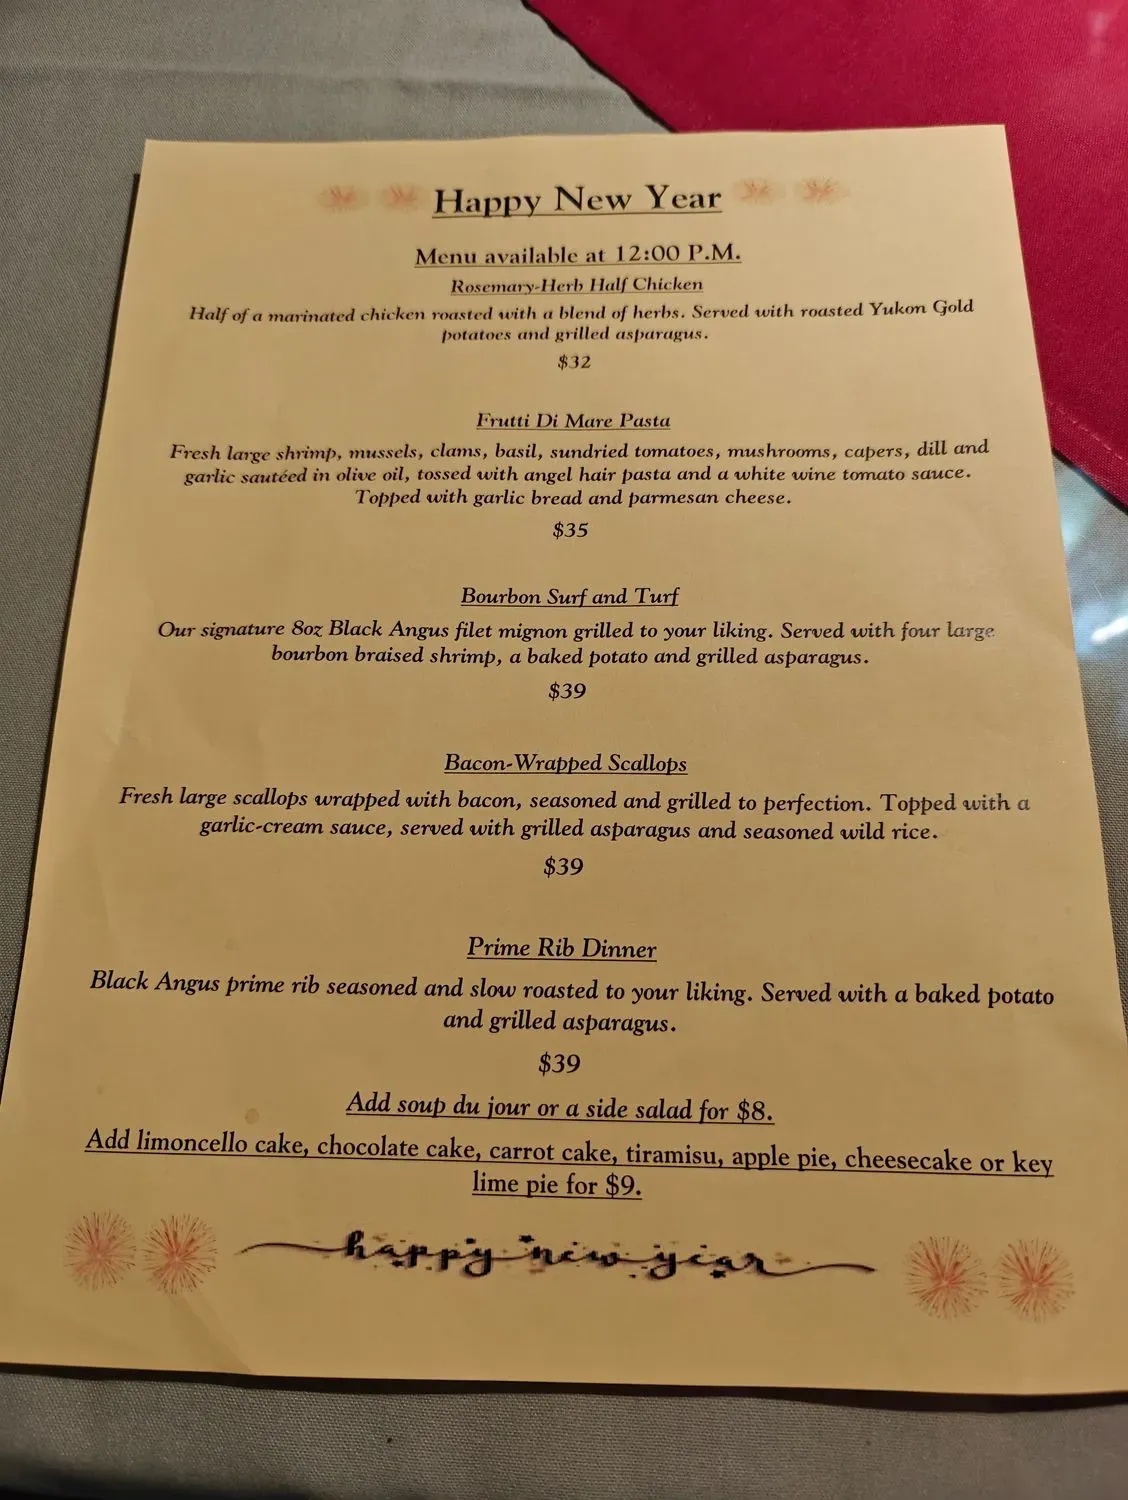 Happy New Year
Menu available at 12:00 P.M.
Rosemary-Herb Half Chicken
Half of a marinated chicken roasted with a blend of herbs. Served with roasted Yukon Gold
potatoes and grilled asparagus.
$32
Frutti Di Mare Pasta
Fresh large shrimp, mussels, clams, basil, sundried tomatoes, mushrooms, capers, dill and
garlic sautéed in olive oil, tossed with angel hair pasta and a white wine tomato sauce.
Topped with garlic bread and parmesan cheese.
$35
Bourbon Surf and Turf
Our signature 8oz Black Angus filet mignon grilled to your liking. Served with four large
bourbon braised shrimp, a baked potato and grilled asparagus.
$39
Bacon-Wrapped Scallops
Fresh large scallops wrapped with bacon, seasoned and grilled to perfection. Topped with a
garlic-cream sauce, served with grilled asparagus and seasoned wild rice.
$39
Prime Rib Dinner
Black Angus prime rib seasoned and slow roasted to your liking. Served with a baked potato
and grilled asparagus.
$39
Add soup du jour or a side salad for $8.
Add limoncello cake, chocolate cake, carrot cake, tiramisu, apple pie, cheesecake or key
lime pie for $9.
happy new year